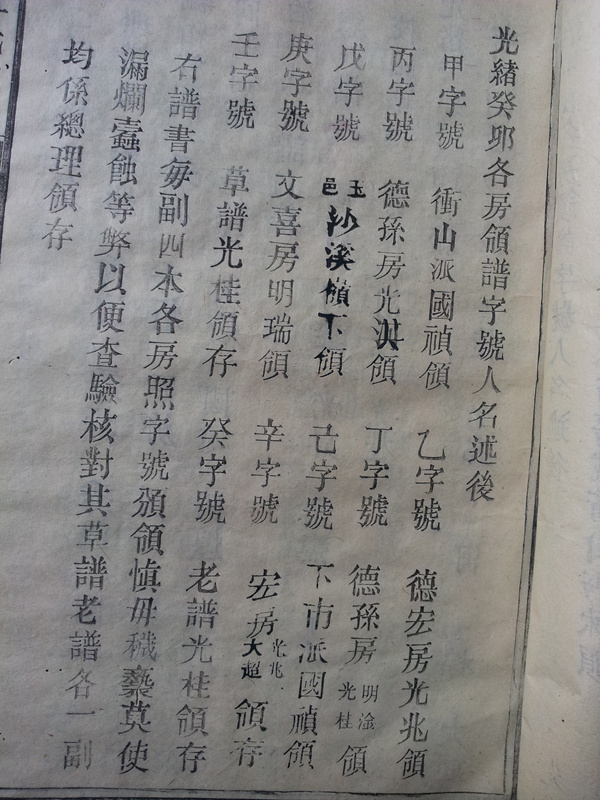 光緒癸卯各房領譜字號人名述後
甲字號 衝山派國禎領 乙字號 德宏房光兆領
丙字號 德孫房光淇領 丁字號 德孫房明淦光桂領
戊字號 玉邑沙溪嶺下領 己字號 下市派國禎領
庚字號 文喜房明瑞領 辛字號 宏房光兆大超領存
壬字號 草譜光桂領存 癸字號 老譜光桂領存
右譜書每副四本各房照字號頒領慎毋穢褻莫使
漏爛蠹蝕等弊以便查驗核對其草譜老譜各一副
均係總理領存